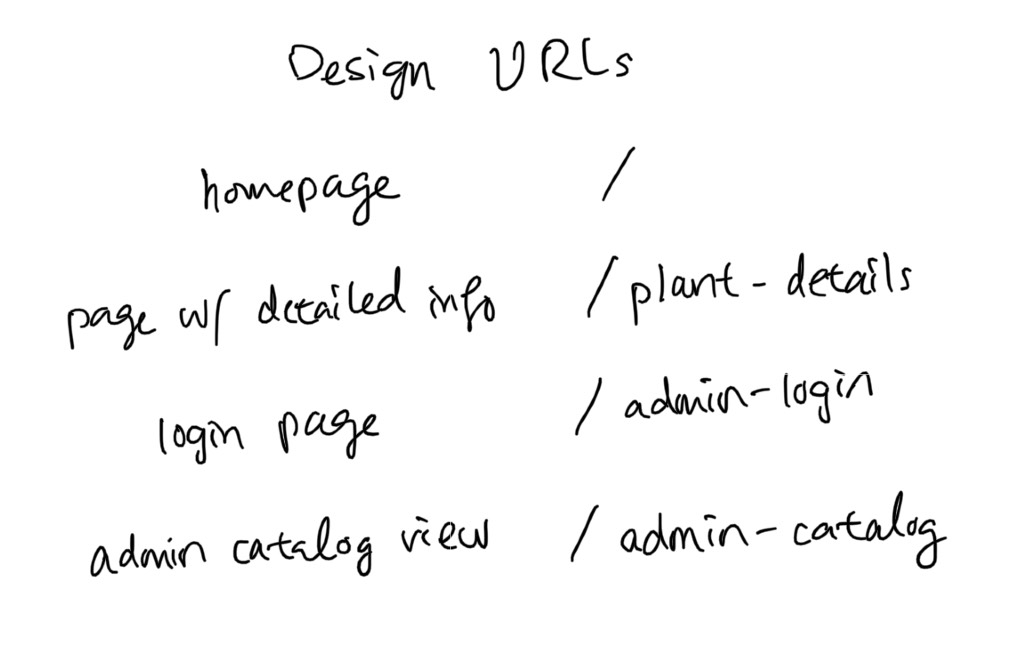 Design URLs
homepage /
page w/ detailed info /plant-details
login page /admin-login
admin catalog view /admin-catalog